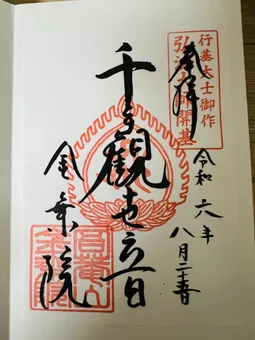 行基大士御作
弘法大師開基
奉拝
令和六年
八月二十
千手觀世音
金乗院